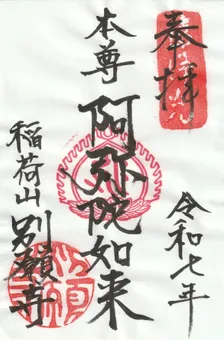 奉拝
令和七年
本尊
阿弥陀如来
稲荷山別願寺